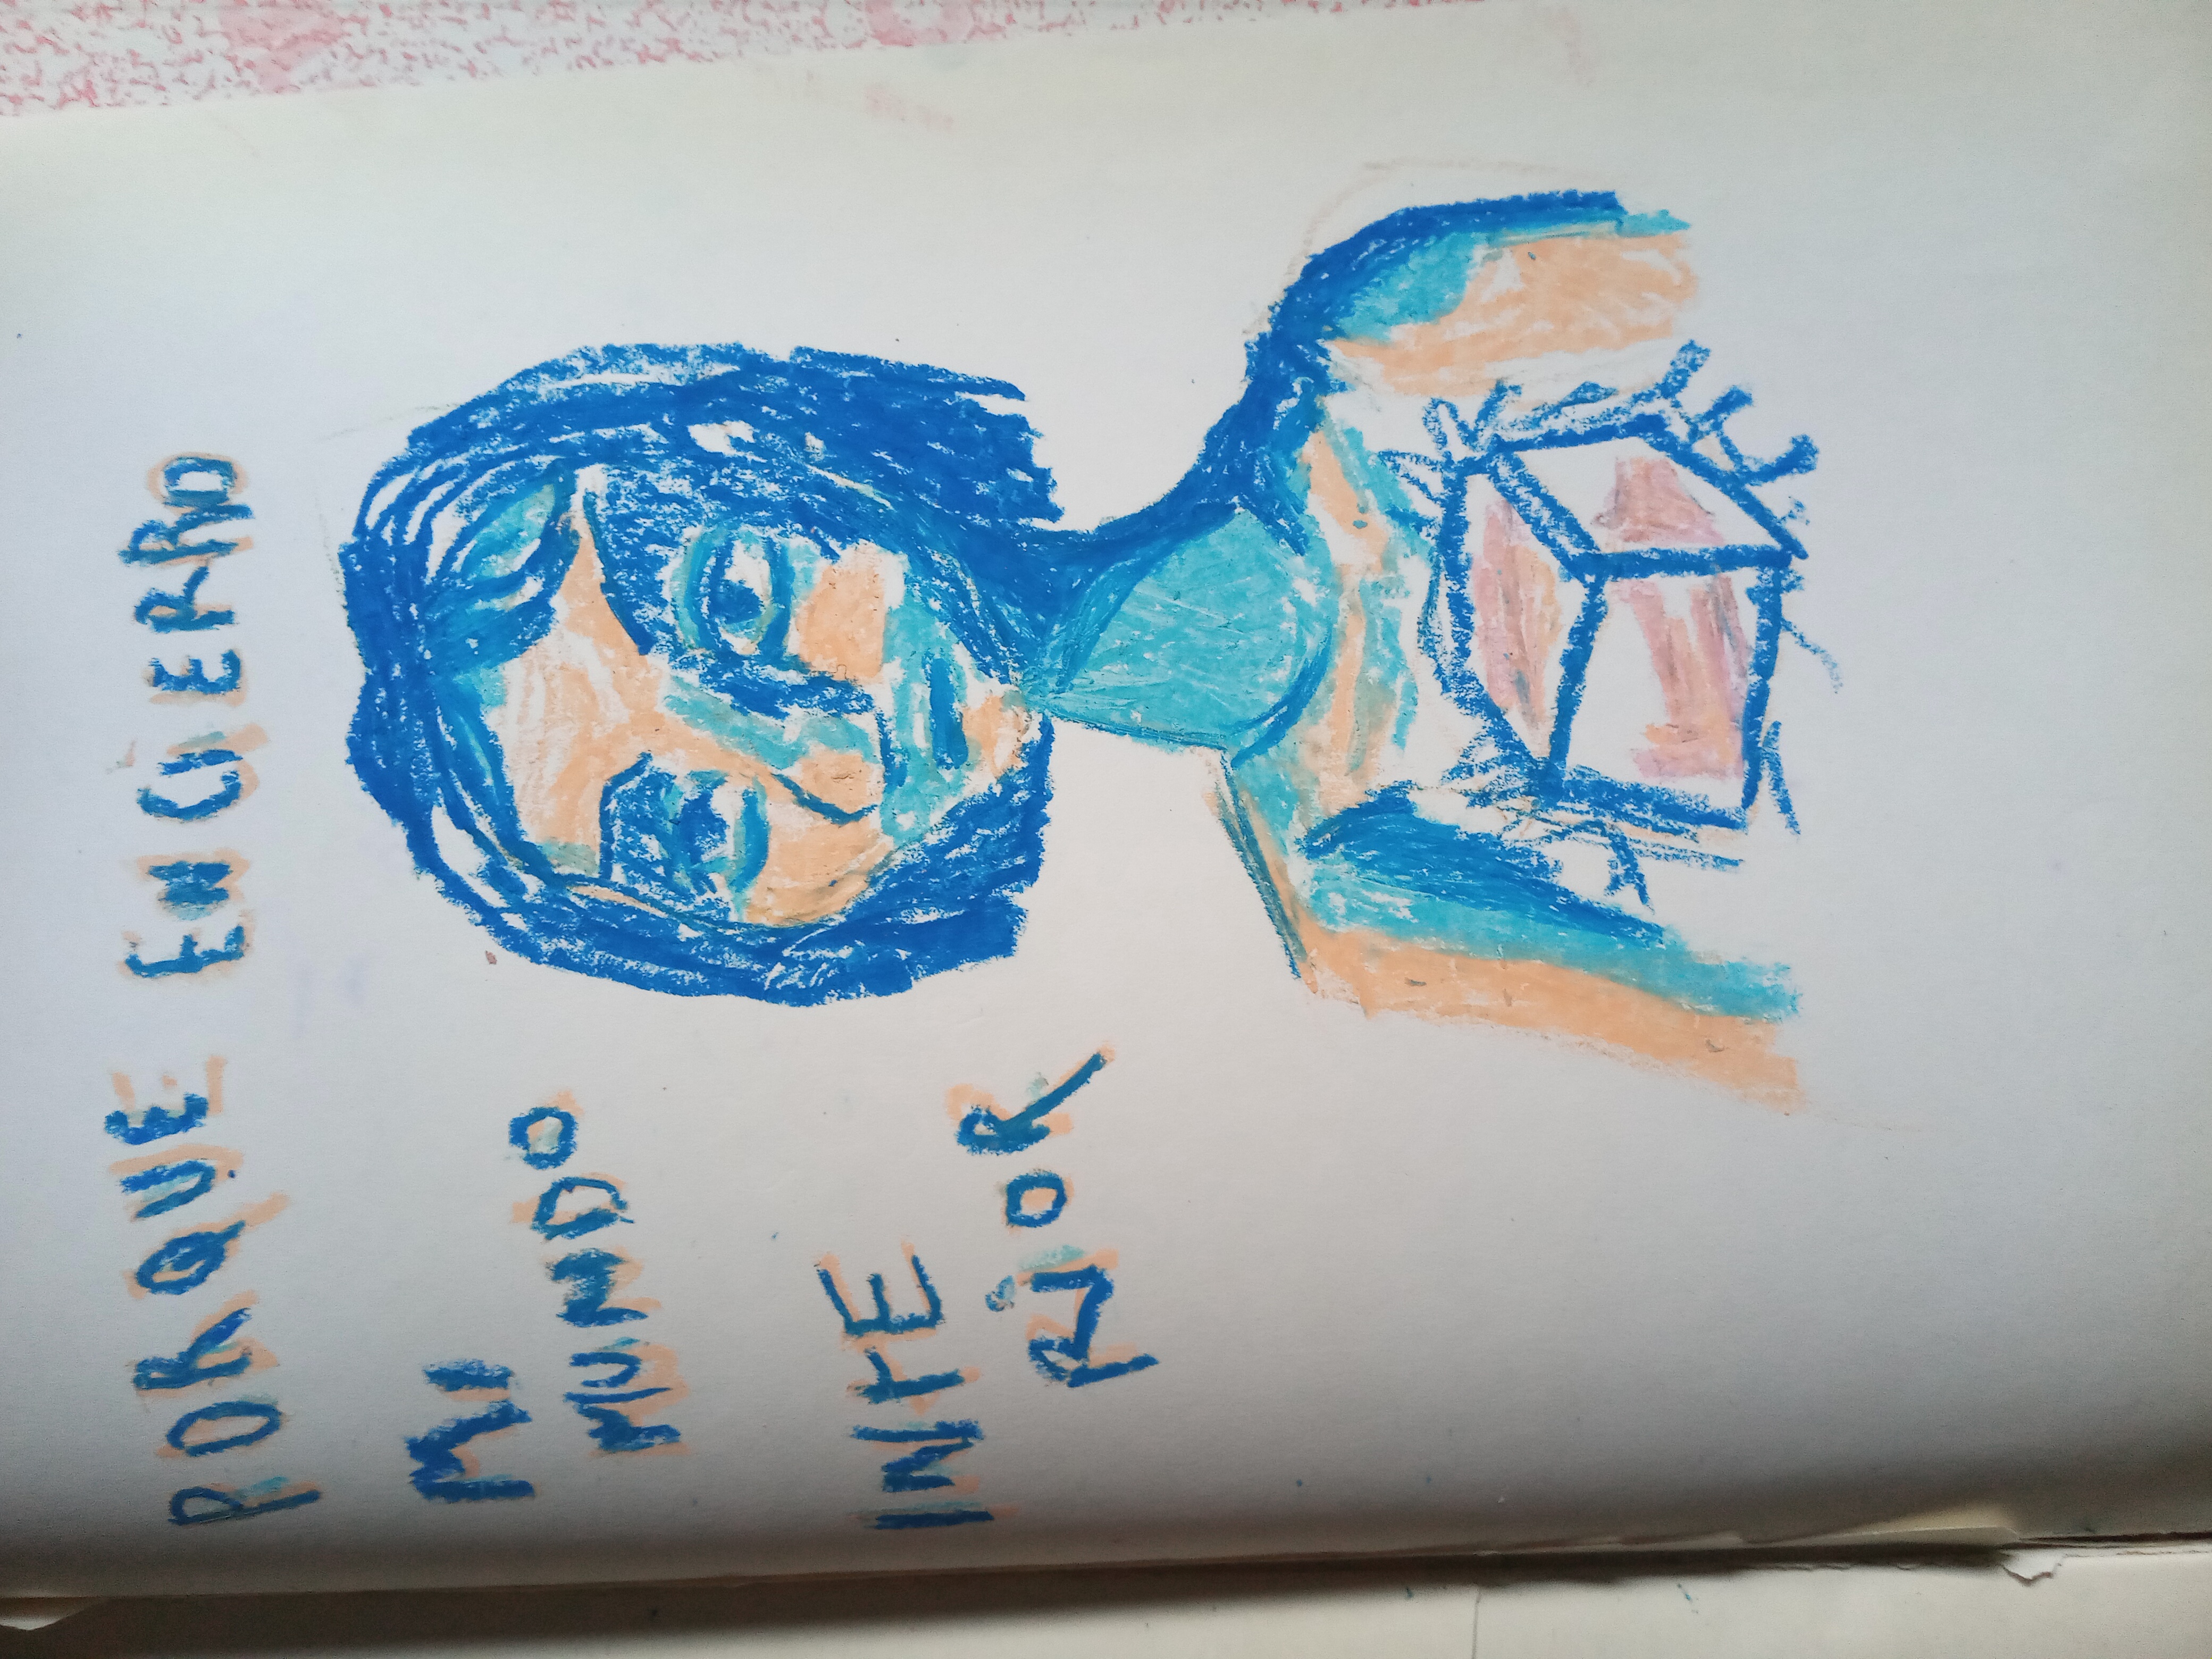 PORQUE ENCIERRO
MI
MUNDO
INTE
RIOR